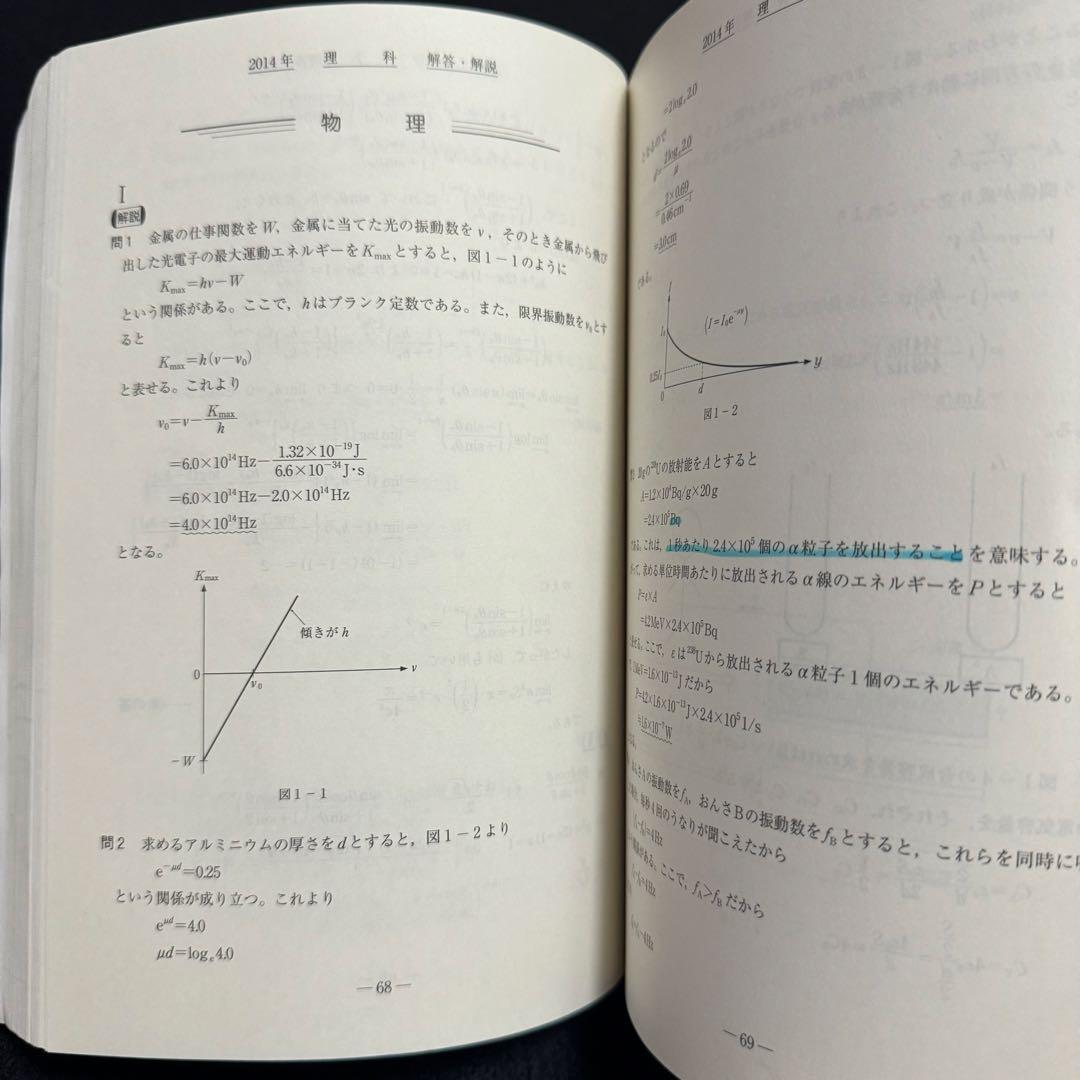 2014年　理　科　解答・解説
物　理
I
解説
問1　金属の仕事関数をW，金属に当てた光の振動数をν，そのとき金属から飛び
出した光電子の最大運動エネルギーをKmaxとすると，図1－1のように
Kmax=hν−W
という関係がある。ここで，hはプランク定数である。また，限界振動数をν₀とす
ると
Kmax=h(ν−ν₀)
と表せる。これより
ν₀=ν−Kmax/h
=6.0×10¹⁴Hz−1.32×10⁻¹⁹J/6.6×10⁻³⁴J・s
=6.0×10¹⁴Hz−2.0×10¹⁴Hz
=4.0×10¹⁴Hz
となる。
Kmax
傾きがh
0
ν₀
ν
−W
図1－1
問2　求めるアルミニウムの厚さをdとすると，図1－2より
e⁻μᵈ=0.25
という関係が成り立つ。これより
eμᵈ=4.0
μd=logₑ4.0
—68—
2014年　理
=2logₑ2.0
d=2logₑ2.0/μ
=2×0.69/0.46cm⁻¹
=3.0cm
である。
I
I₀
(I=I₀e⁻μʸ)
0.25I₀
0
d
y
図1－2
20gの²³⁸Uの放射能をAとすると
A=1.2×10⁴Bq/g×20g
=2.4×10⁵Bq
である。これは，1秒あたり2.4×10⁵個のα粒子を放出することを意味する。
求める単位時間あたりに放出されるα線のエネルギーをPとすると
P=ε×A
=4.2MeV×2.4×10⁵Bq
ここで，εは²³⁸Uから放出されるα粒子1個のエネルギーである。
1MeV=1.6×10⁻¹³Jだから
P=4.2×1.6×10⁻¹³J×2.4×10⁵1/s
=1.6×10⁻⁷W
おんさAの振動数をfA，おんさBの振動数をfBとすると，これらを同時に
毎秒4回のうなりが聞こえたから
=4Hz
ここで，fA>fBだから
=4Hz
—69—